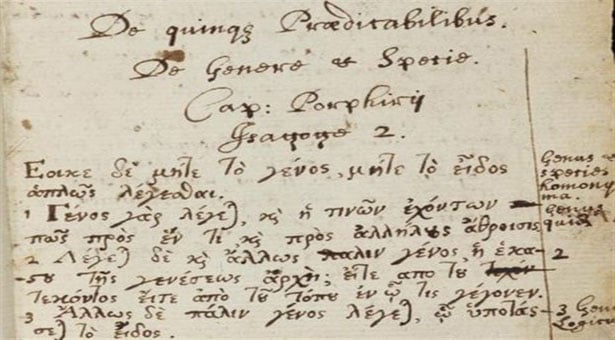 De quinqȝ Prædicabilibus.
De Genere & Specie.
Cap: Porphirij
Isagoge 2.
Εοικε δὲ μήτε τὸ γένος, μήτε τὸ εἶδος
ἁπλῶς λέγεσθαι.
1 Γένος γὰρ λέγε), κὶ ἡ τινῶν ἐχόντων
πῶς πρὸς ἕν τι κὶ πρὸς ἀλλήλους ἄθροισις
2 Λέγε) δὲ κὶ ἄλλως πάλιν γένος, ἡ ἑκά-
-ϛου τῆς γενέσεως ἀρχὴ; εἴτε απο τοῦ
τεκόντος εἴτε απο τοῦ τόπου ἐν ᾧ τις γέγονεν.
3 Ἄλλως δὲ πάλιν γένος λέγε), ᾧ ὑποτάσ-
σε) τὸ εἶδος.
Genus
species
homony
ma.
Genus
quid
2
3